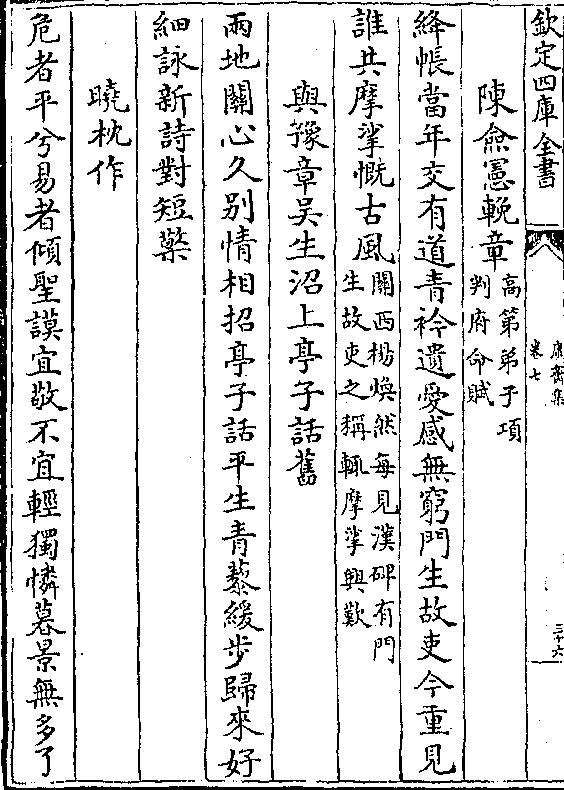 欽定四庫全書
康齋集
卷七
三十六
陳僉憲輓章
高第弟子項
判府命賦
絳帳當年交有道青衿遺愛感無窮門生故吏今重見
誰共摩挲慨古風
關西楊煥然每見漢碑有門
生故吏之稱輒摩挲興歎
與豫章吳生沼上亭子話舊
兩地關心久别情相招亭子話平生青藜緩步歸來好
細詠新詩對短檠
曉枕作
危者平兮易者傾聖謨宜敬不宜輕獨憐暮景無多了